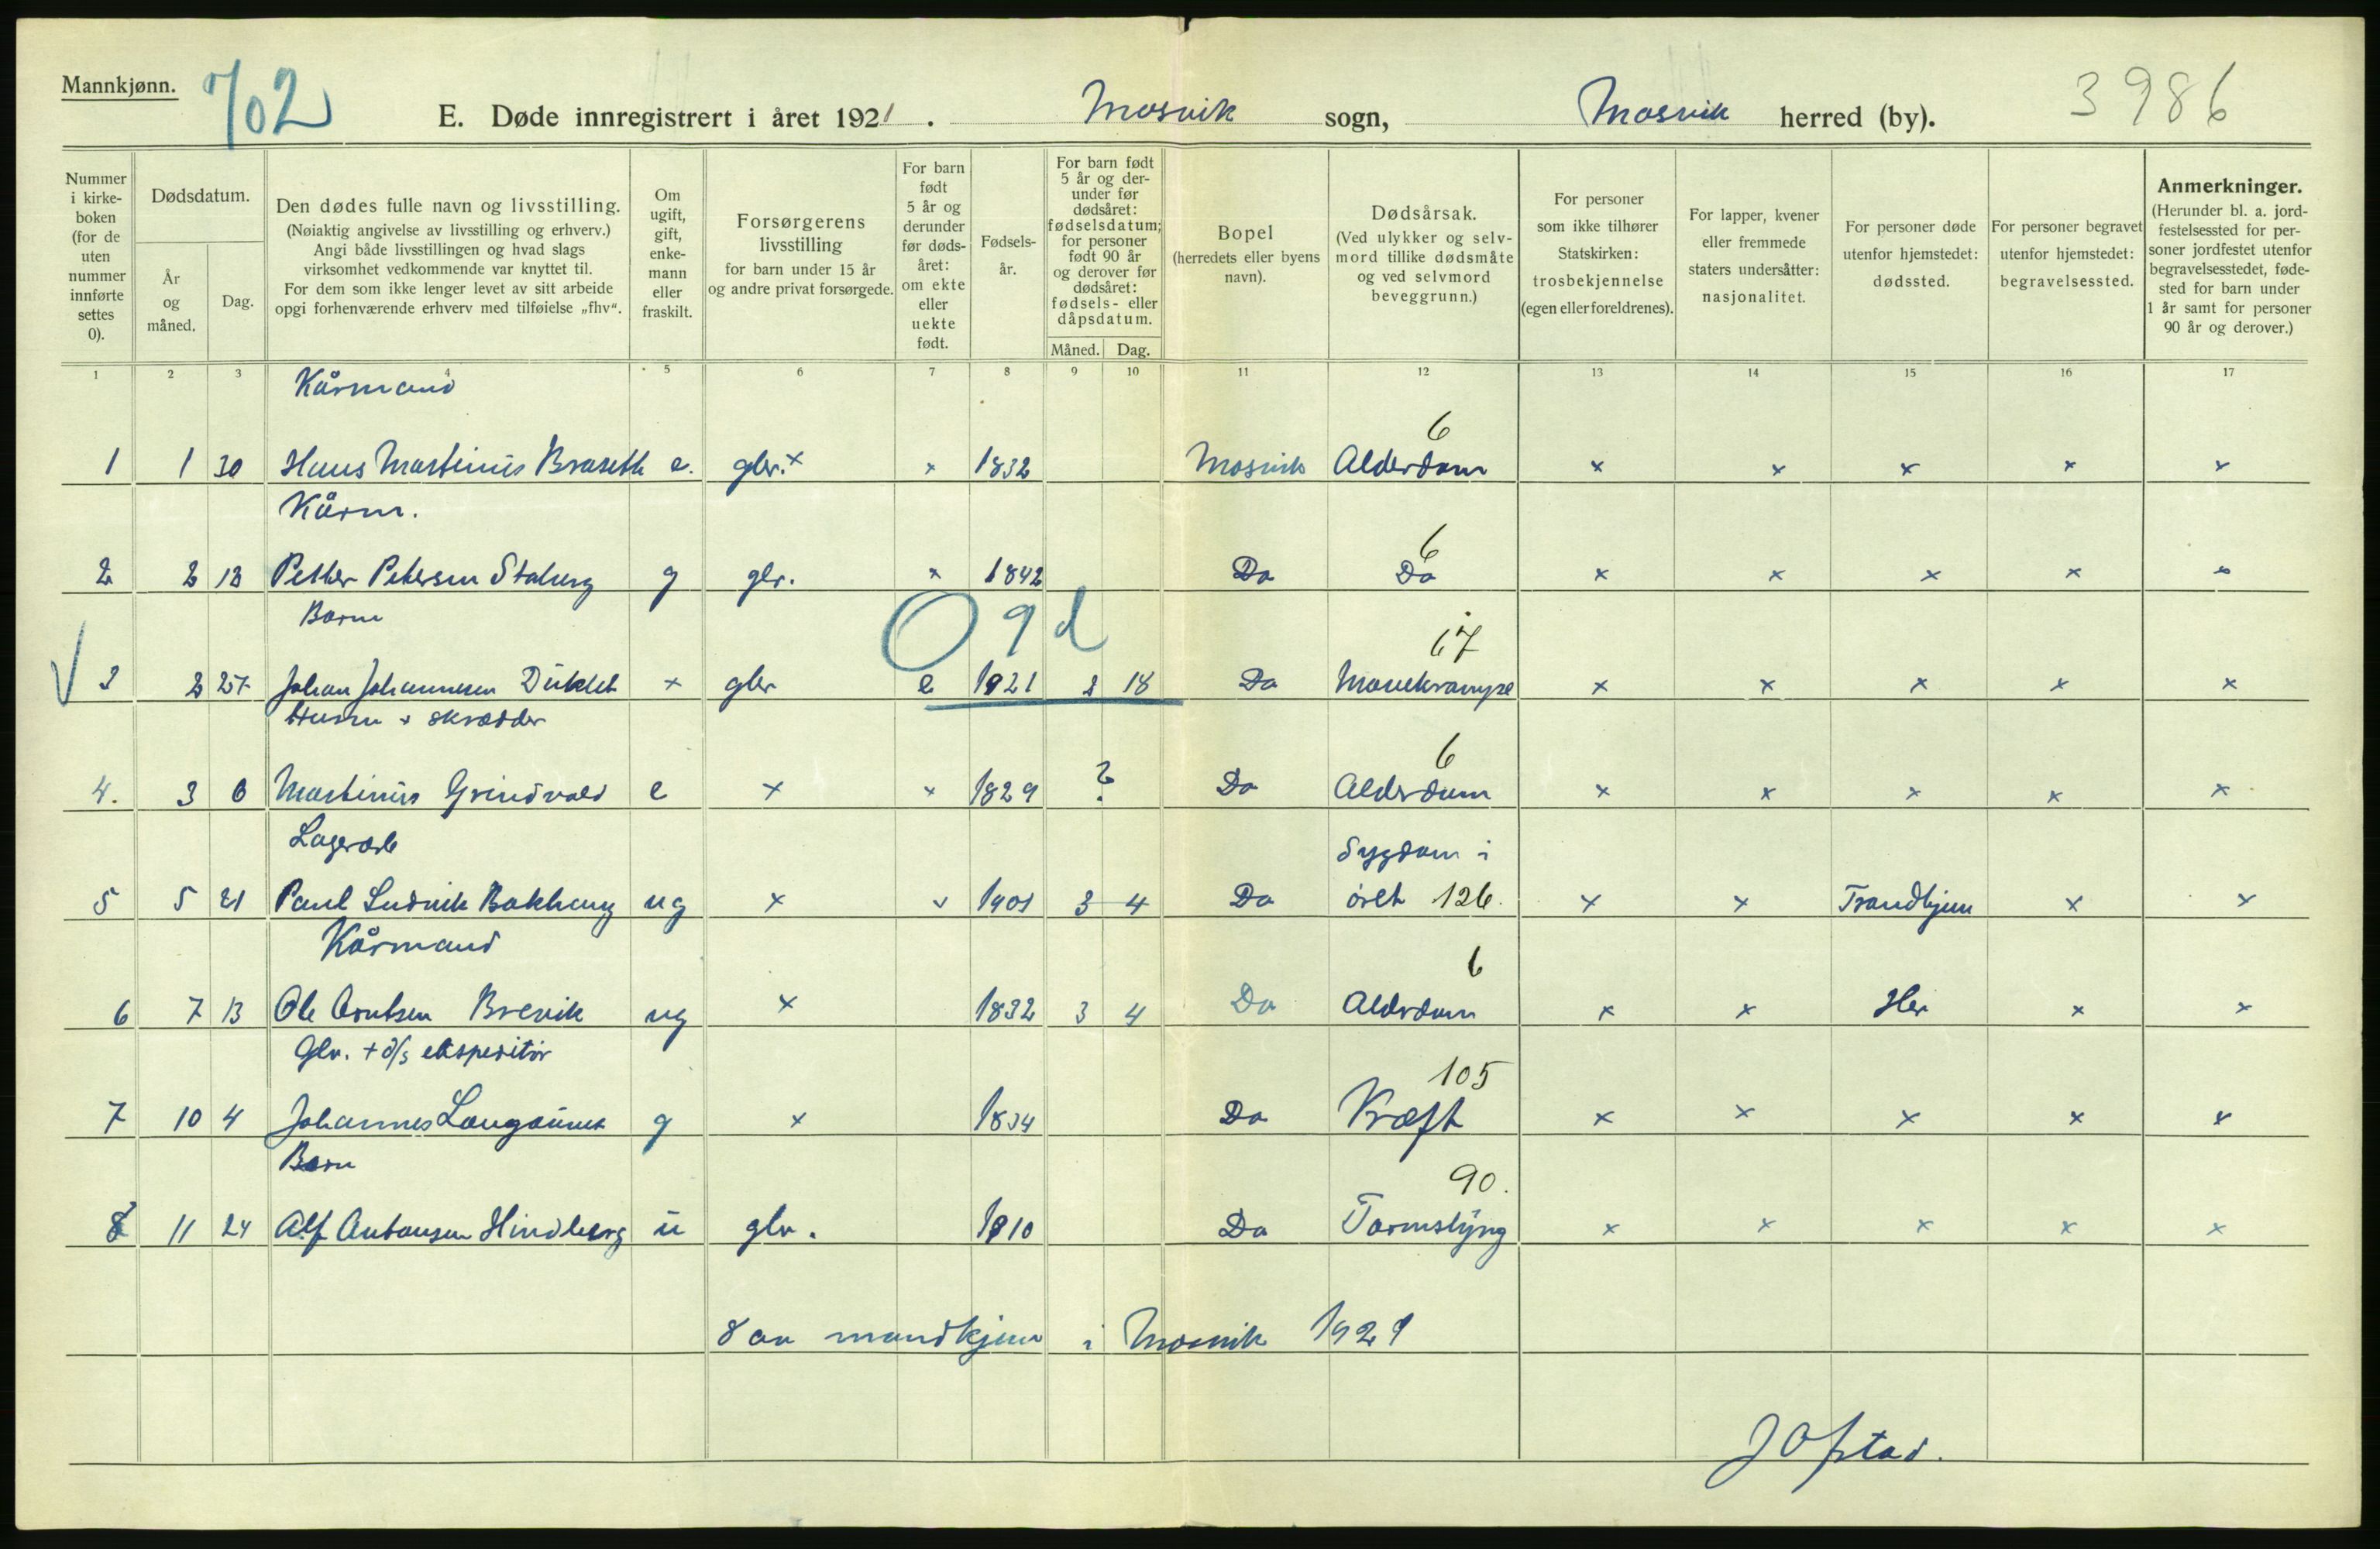 Mannkjønn.
702
E. Døde innregistrert i året 1921. Mosvik sogn, Mosvik herred (by).
3986
Nummer i kirke-boken (for de uten nummer innførte settes 0).
Dødsdatum.
År og måned.
Dag.
Den dødes fulle navn og livsstilling.
(Nøiaktig angivelse av livsstilling og erhverv.)
Angi både livsstillingen og hvad slags
virksomhet vedkommende var knyttet til.
For dem som ikke lenger levet av sitt arbeide
opgi forhenværende erhverv med tilføielse „fhv“.
Om ugift, gift, enke-mann eller fraskilt.
Forsørgerens livsstilling
for barn under 15 år
og andre privat forsørgede.
For barn født 5 år og derunder før døds-året: om ekte eller uekte født.
Fødsels-år.
For barn født 5 år og der-under før dødsåret: fødselsdatum; for personer født 90 år og derover før dødsåret: fødsels- eller dåpsdatum.
Måned. Dag.
Bopel
(herredets eller byens navn).
Dødsårsak.
(Ved ulykker og selv-mord tillike dødsmåte og ved selvmord beveggrunn.)
For personer som ikke tilhører Statskirken: trosbekjennelse (egen eller foreldrenes).
For lapper, kvener eller fremmede staters undersåtter: nasjonalitet.
For personer døde utenfor hjemstedet: dødssted.
For personer begravet utenfor hjemstedet: begravelsessted.
Anmerkninger.
(Herunder bl. a. jord-festelsessted for per-soner jordfestet utenfor begravelsesstedet, føde-sted for barn under 1 år samt for personer 90 år og derover.)
1 2 3 4 5 6 7 8 9 10 11 12 13 14 15 16 17
Kårmand
6
1 1 30 Hans Martinius Braseth e. gbr. × × 1832 Mosvik Alderdom × × × × ×
Kårm.
6
2 2 12 Petter Petersen Staberg g gbr. × 1842 Do Do × × × × ×
Barn
O 9 d
67
3 2 27 Johan Johannesen × gbr e 1921 2 18 Do Mavekrampe × × × × ×
Husm + skrædder
6
4. 3 6 Martinus Grindvold e × × 1829 ? Do Alderdom × × × × ×
Sygdom i
5 5 21 Paul Ludvik Bakhaug ug × × 1901 3 4 Do øret 126. × × Trondhjem × ×
Kårmand
6
6 7 13 Ole Arntsen Brevik ug × 1832 3 4 Do Alderdom × × Her × ×
Gbr. + d/s ekspeditør
105
7 10 4 Johannes Langaunet g × 1834 Do Kræft × × × × ×
Barn
90.
8 11 24 Alf Antonsen Hindberg u gbr. 1910 Do Tarmslyng × × × × ×
8 av mandkjøn i Mosvik 1921
J Ofstad.